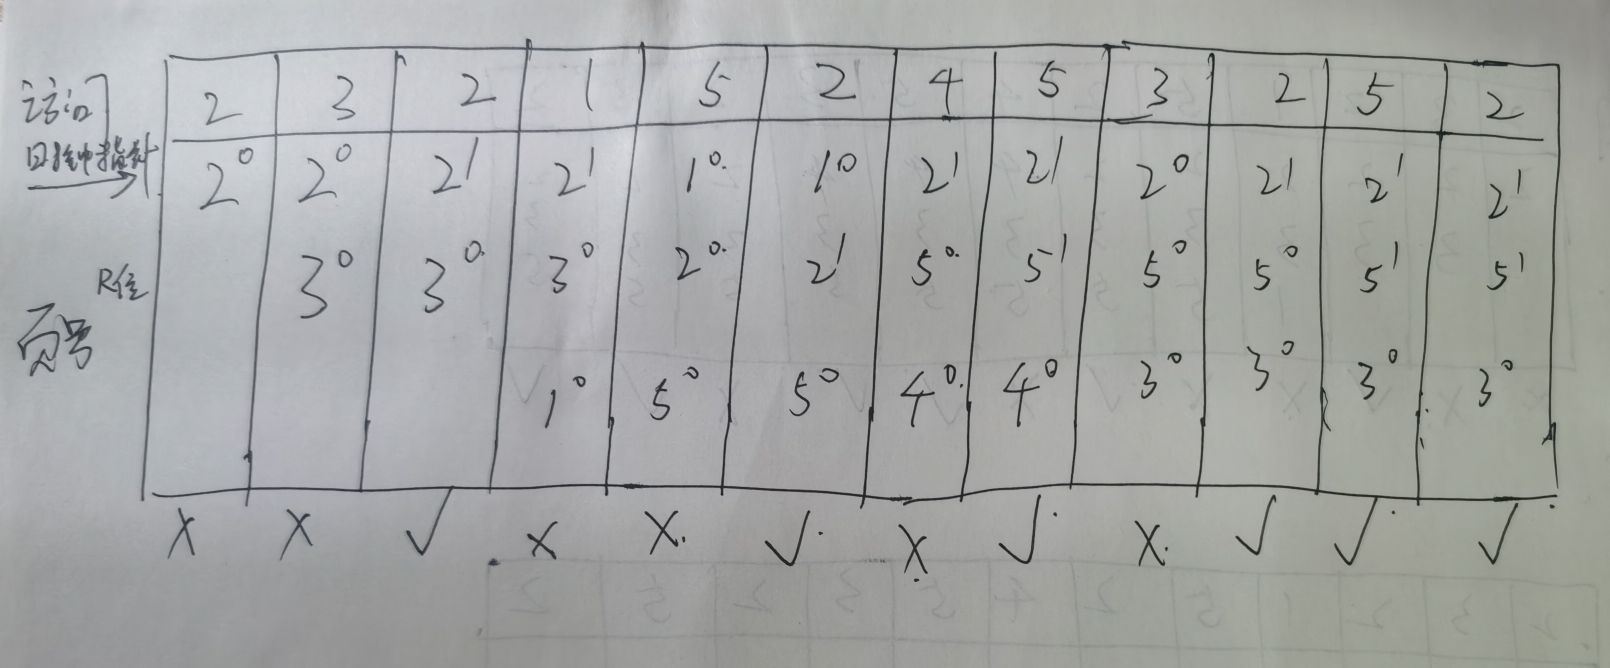 访问 2 3 2 1 5 2 4 5 3 2 5 2
时钟指针 2⁰ 2⁰ 2¹ 2¹ 1⁰ 1⁰ 2¹ 2¹ 2⁰ 2¹ 2¹ 2¹
R位 3⁰ 3⁰ 3⁰ 2⁰ 2¹ 5⁰ 5¹ 5⁰ 5⁰ 5¹ 5¹
页号 1⁰ 5⁰ 5⁰ 4⁰ 4⁰ 3⁰ 3⁰ 3⁰ 3⁰
X X √ X X √ X √ X √ √ √